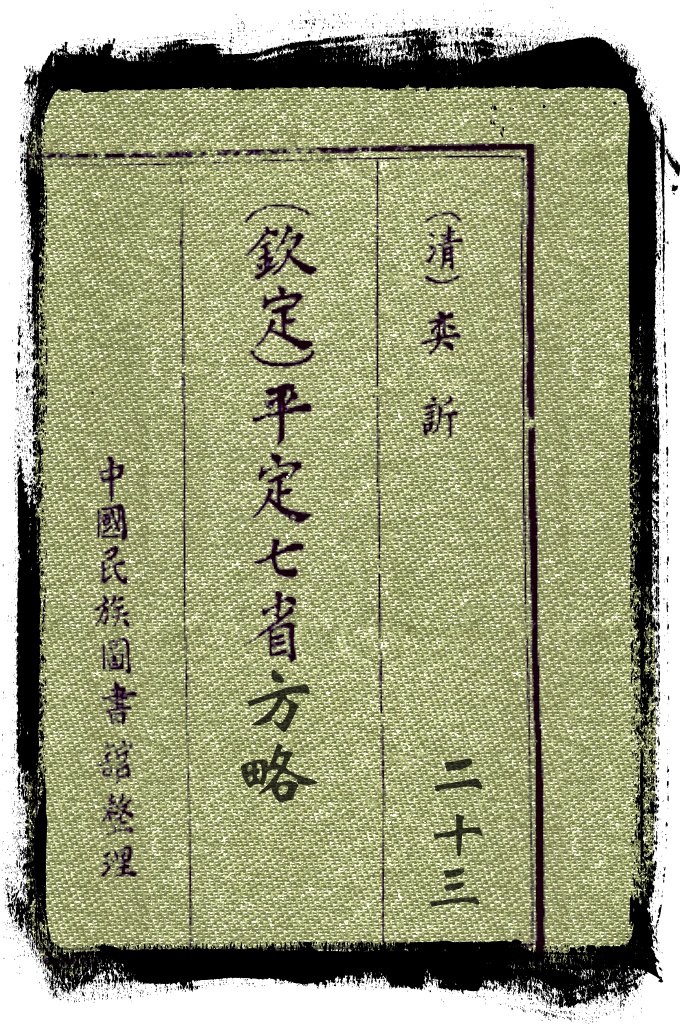 （清）奕訢
二十三
（欽定）平定七省方略
中國民族圖書館整理